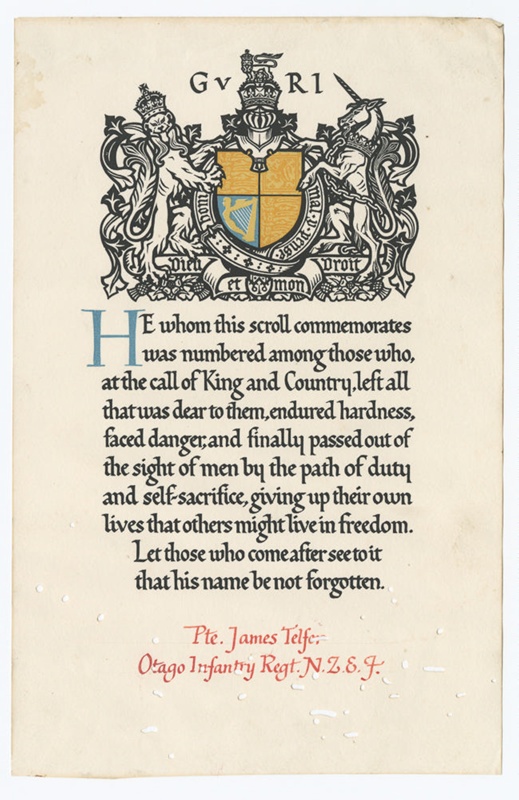 G V R I
Dieu et mon Droit
HE whom this scroll commemorates
was numbered among those who,
at the call of King and Country, left all
that was dear to them, endured hardness,
faced danger, and finally passed out of
the sight of men by the path of duty
and self-sacrifice, giving up their own
lives that others might live in freedom.
Let those who come after see to it
that his name be not forgotten.
Pte. James
Otago Infantry Regt. N.Z.E.F.